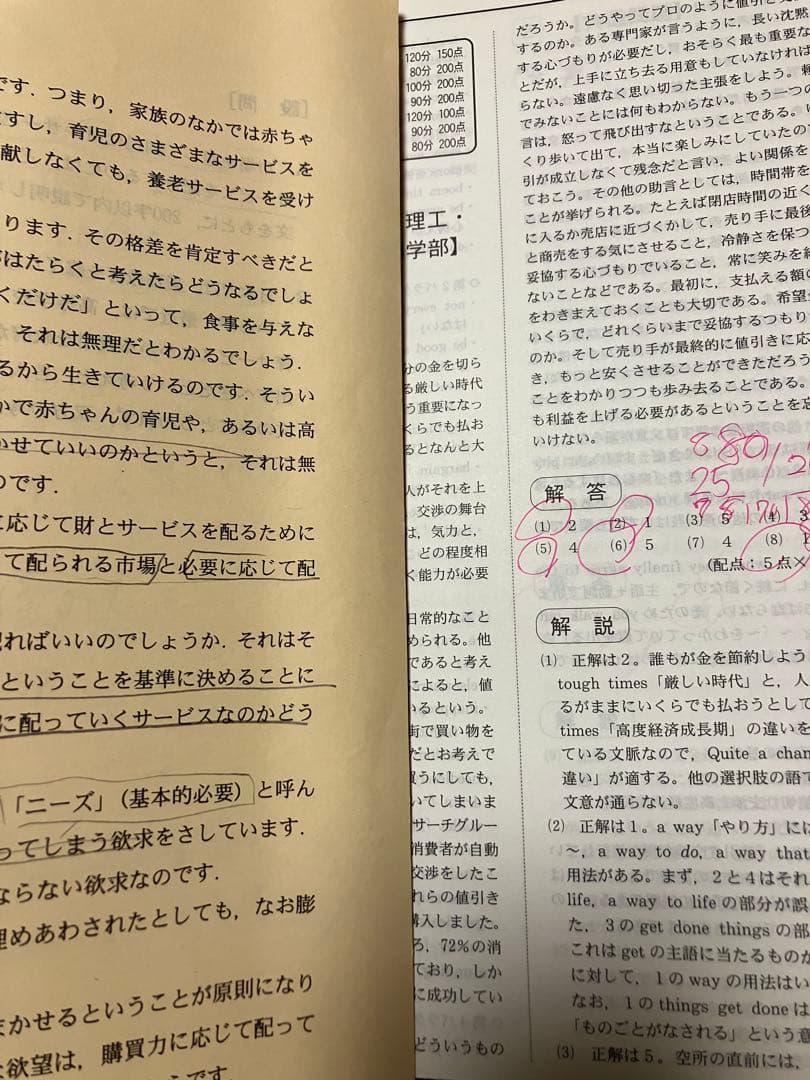 です．つまり，家族のなかでは赤ちゃ
すし，育児のさまざまなサービスを
献しなくても，養老サービスを受け
ります．その格差を肯定すべきだと
がはたらくと考えたらどうなるでしょ
くだけだ」といって，食事を与えな
それは無理だとわかるでしょう．
るから生きていけるのです．そうい
かで赤ちゃんの育児や，あるいは高
かせていいのかというと，それは無
のです．
に応じて財とサービスを配るために
て配られる市場と必要に応じて配
配ればいいのでしょうか．それはそ
ということを基準に決めることに
に配っていくサービスなのかどう
「ニーズ」（基本的必要）と呼ん
ってしまう欲求をさしています．
ならない欲求なのです．
埋めあわされたとしても，なお膨
まかせるということが原則になり
な欲望は，購買力に応じて配って
うです．
120分 150点
80分 200点
100分 200点
90分 200点
120分 100点
90分 200点
80分 200点
理工・
学部】
分の金を切ら
る厳しい時代
う重要になっ
くらでも払お
るとなんと大
人がそれを上
交渉の舞台
は，気力と，
どの程度相
く能力が必要
日常的なこと
められる。他
であると考え
によると，値
いるという。
街で買い物を
だとお考えで
買うにしても，
いてしまいま
サーチグルー
消費者が自動
交渉をしたこ
れらの値引き
購入しました。
ろ，72%の消
ており，しか
に成功してい
どういうもの
だろうか。どうやってプロのように値引と交
するのか。ある専門家が言うように，長い沈黙
する心づもりが必要だし，おそらく最も重要な
とだが，上手に立ち去る用意もしていなければ
らない。遠慮なく思い切った主張をしよう。頼
でみないことには何もわからない。もう一つの
言は，怒って飛び出すなということである。ゆ
くり歩いて出て，本当に楽しみにしていたので
引が成立しなくて残念だと言い，よい関係を
ておこう。その他の助言としては，時間帯を
ことが挙げられる。たとえば閉店時間の近く
に入るか売店に近づくかして，売り手に最後
と商売をする気にさせること，冷静さを保つ
妥協する心づもりでいること，常に笑みを絶
ないことなどである。最初に，支払える額の
をわきまえておくことも大切である。希望
いくらで，どれくらいまで妥協するつもり
のか。そして売り手が最終的に値引きに応
き，もっと安くさせることができただろう
ことをわかりつつも歩み去ることである。
も利益を上げる必要があるということを忘
いけない。
解 答
(1) 2 (2) 1 (3) 5 (4) 3
(5) 4 (6) 5 (7) 4 (8) 1
（配点：5点×
解 説
(1) 正解は2。誰もが金を節約しよう
tough times「厳しい時代」と，人
るがままにいくらでも払おうとして
times「高度経済成長期」の違いを
ている文脈なので，Quite a chan
違い」が適する。他の選択肢の語で
文意が通らない。
(2) 正解は1。a way「やり方」には
～，a way to do，a way that
用法がある。まず，2と4はそれ
life，a way to life の部分が誤
た，3の get done things の部
これは get の主語に当たるものが
に対して，1の way の用法はい
なお，1の things get done は
「ものごとがなされる」という意
(3) 正解は5。空所の直前には，